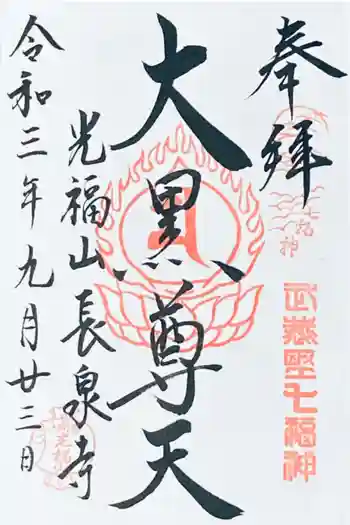 奉拝
武蔵野七福神
大黒尊天
光福山長泉寺
令和三年九月廿三日